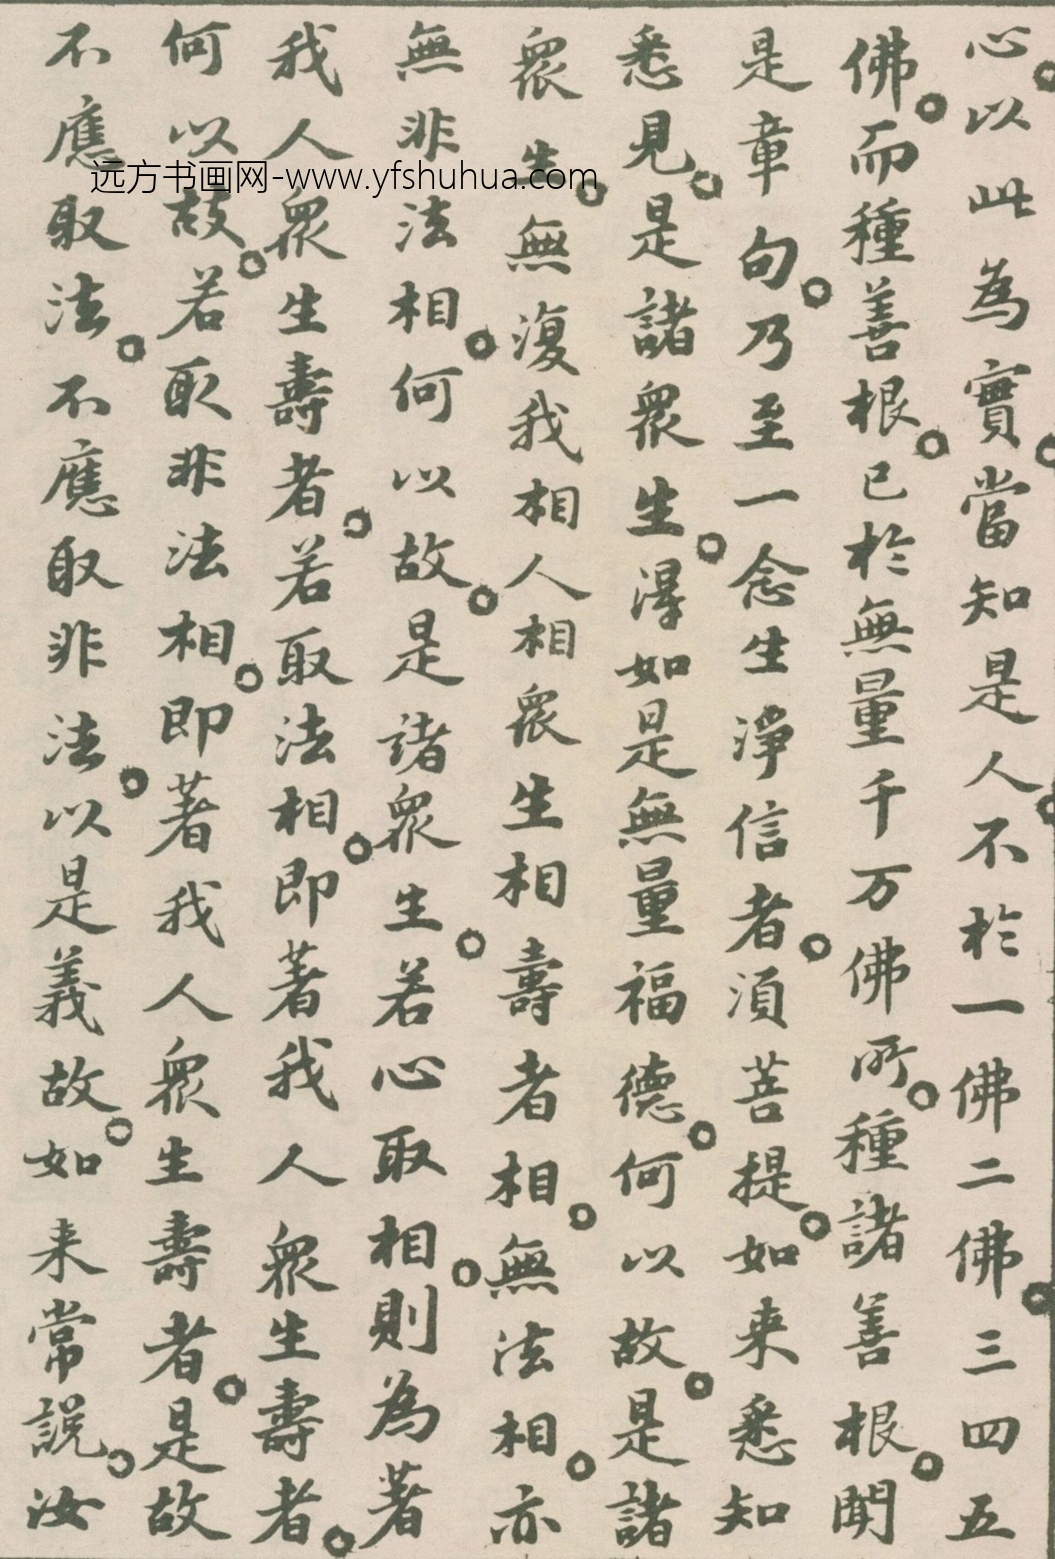 心以此為實當知是人不於一佛二佛三四五
佛而種善根已於無量千万佛所種諸善根聞
是章句乃至一念生淨信者須菩提如来悉知
悉見是諸衆生得如是無量福德何以故是諸
衆生無復我相人相衆生相壽者相無法相亦
無非法相何以故是諸衆生若心取相則為著
我人衆生壽者若取法相即著我人衆生壽者
何以故若取非法相即著我人衆生壽者是故
不應取法不應取非法以是義故如来常說汝
远方书画网-www.yfshuhua.com